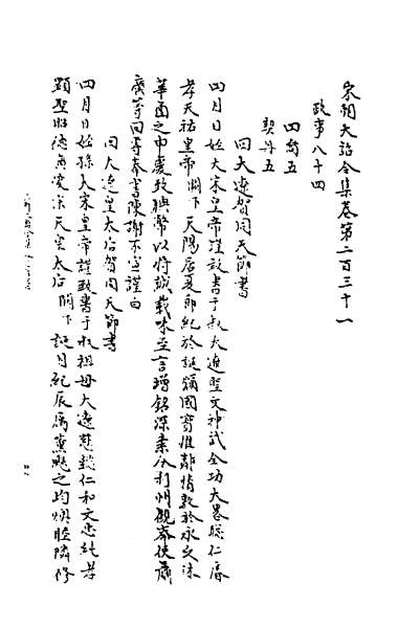 宋朝大詔令集卷第二百三十一
政事八十四
四裔五
契丹五
回大遼賀同天節書
四月日姪大宋皇帝謹致書于叔大遼聖文神武全功大畧聰仁睿
孝天祐皇帝闕下天陽居夏節紀於誕彌國寶惟鄰情敦於永久沐
華函之申慶致腆幣以将誠載味至言增銘深素今利州觀察使蕭
廣等回專奉書陳謝不宣謹白
回大遼皇太后賀同天節書
四月日姪孫大宋皇帝謹致書于叔祖母大遼慈懿仁和文惠純孝
顯聖昭德廣愛宗天皇太后闕下誕月紀辰屬薰飈之均煥睦隣修